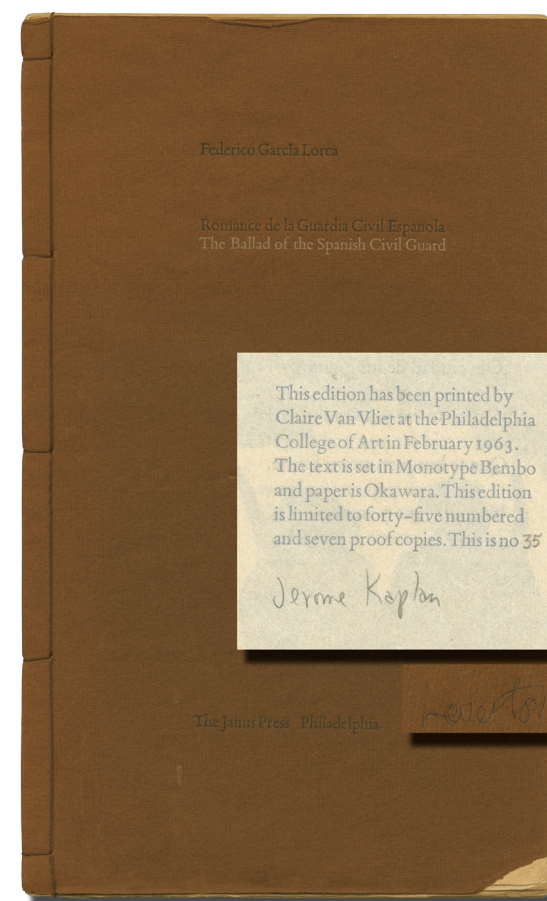 Federico García Lorca
Romance de la Guardia Civil Espanola
The Ballad of the Spanish Civil Guard
This edition has been printed by
Claire Van Vliet at the Philadelphia
College of Art in February 1963.
The text is set in Monotype Bembo
and paper is Okawara. This edition
is limited to forty-five numbered
and seven proof copies. This is no 35
Jerome Kaplan
The Janus Press Philadelphia